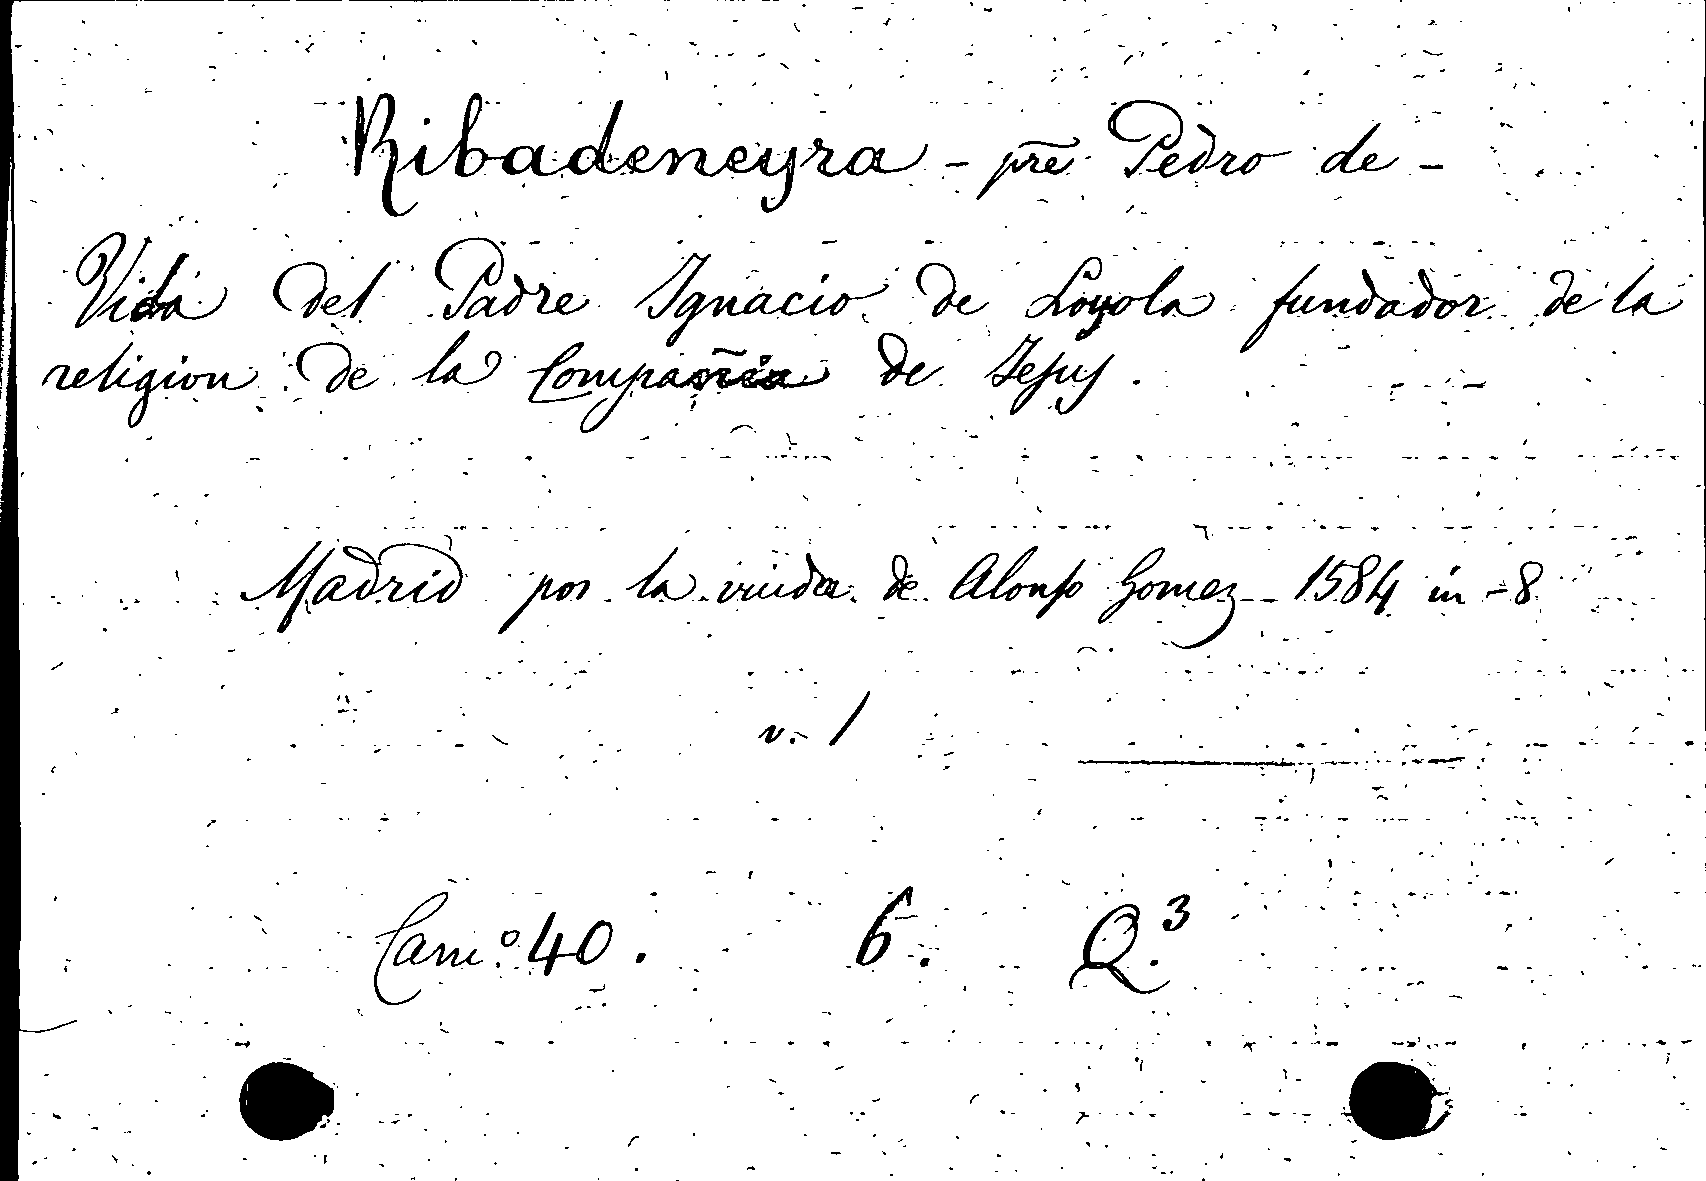 Ribadeneyra - pre Pedro de -
Vida del Padre Ignacio de Loyola fundador de la
religion de la Compañia de Jesus.
Madrid por la viuda de Alonso Gomez 1584 in-8
v. 1
Cam.º 40. 6. Q.3